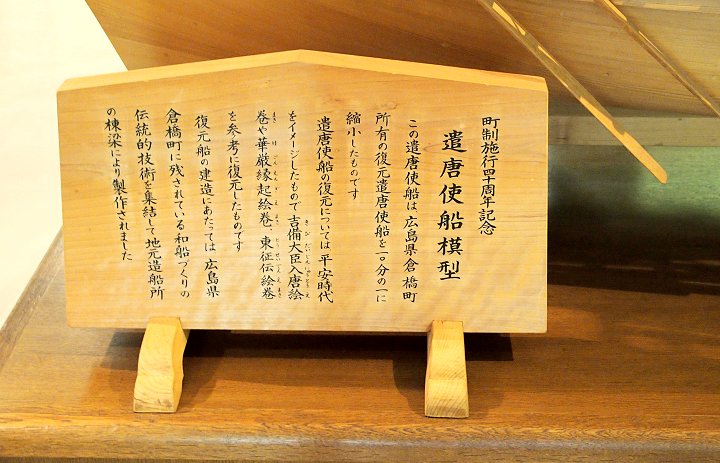 町制施行四十周年記念
遣唐使船模型
この遣唐使船は、広島県倉橋町
所有の復元遣唐使船を一〇分の一に
縮小したものです
遣唐使船の復元については平安時代
をイメージしたもので吉備大臣入唐絵
巻や華厳縁起絵巻、東征伝絵巻
を参考に復元したものです
復元船の建造にあたっては広島県
倉橋町に残されている和船づくりの
伝統的技術を集結して地元造船所
の棟梁により製作されました